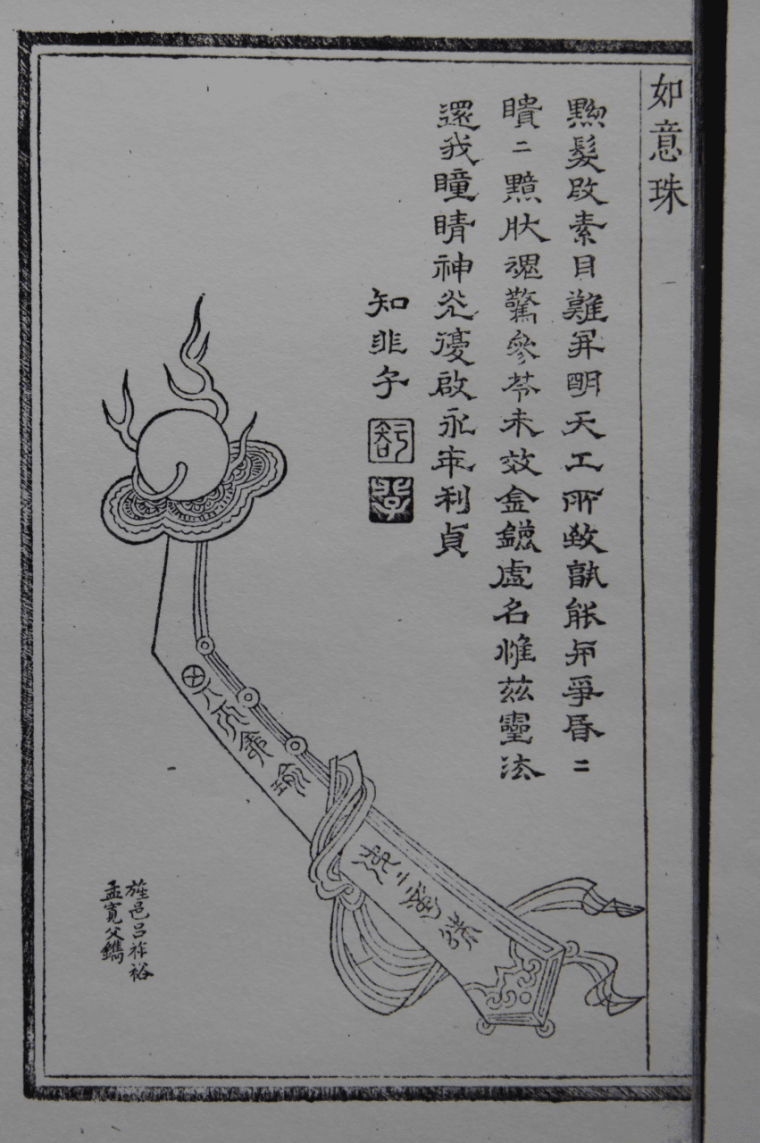 如意珠
黝髮改素目難昇明天工所致孰能與爭昏二
瞶二黯肰魂驚參苓未效金鎞虛名惟茲靈法
還我瞳睛神光復啟永年利貞
知非子
旌邑呂祚裕
孟寬父鐫